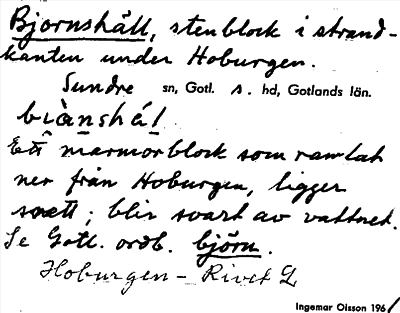 Bjornshäll, stenblock i strand-
kanten under Hoburgen.
Sundre sn, Gotl. s. hd, Gotlands län.
Ett marmorblock som ramlat
ner från Hoburgen, ligger
; blir svart av vattnet.
Se Gotl. ordb. björn.
Hoburgen -
Ingemar Olsson 1961